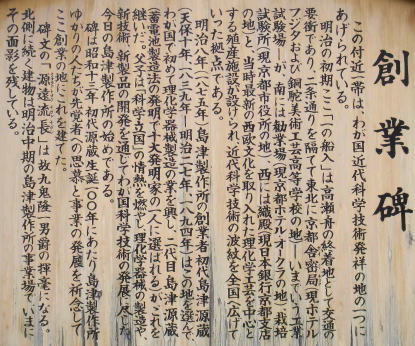 創業碑
この付近一帯は、わが国近代科学技術発祥の地の一つに
あげられている。
明治の初期、ここ「一の船入」は高瀬舟の終着地として交通の
要衝にあり、二条通りを隔てて東北に京都舎密局(現ホテル
フジタおよび銅駝美術工芸高等学校の地)―いまでいう工業
試験場―が、南には勧業場(現京都ホテルオークラの地)、栽培
試験所(現京都市役所の地)、西には織殿(現日本銀行京都支店
の地)と、当時最新の西欧文化を取り入れた理化学工芸を中心と
する殖産施設が設けられ、近代科学技術の波紋を全国へ広げて
いった拠点である。
明治八年(一八七五年)、島津製作所の創業者初代島津源蔵
(天保十年(一八三九年)―明治二七年(一八九四年))はこの地を選んで、
わが国で初めて理化学器械製造の業を興し、二代目島津源蔵
(蓄電池製造法の発明で十大発明家の一人に選ばれる)がこれを
継いだ。父子は「科学立国」の情熱を燃やし、理化学器械の製造や、
新技術、新製品の開発を通してわが国科学技術の発展に尽した。
今日の島津製作所の始めである。
碑は昭和十三年、初代源蔵生誕一〇〇年にあたり、島津製作所
ゆかりの人たちが先覚者への思慕と事業の発展を祈念して
ここ創業の地にこれを建てた。
碑文の「源遠流長」は故九鬼隆一男爵の揮毫になる。
北側に続く建物は明治中期の島津製作所の事業場で、いまに
その面影を残している。